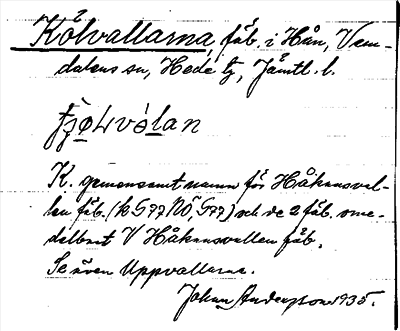 Kölvallarna, fäb. i Hån, Vem-
dalens sn, Hede tg, Jämtl. l.
K. gemensamt namn för Håkansval-
len fäb. (k G77 NÖ, G77) och de 2 fäb. ome-
delbart V Håkansvallen fäb.
Se även Uppvallarna.
Johan Anderson 1935.